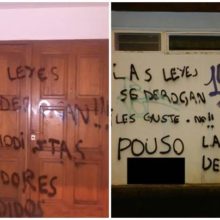 LEYES
DEROGAN!!
ODI TAS
DORES
DIDOS
LAS LEYES
SE DEROGAN
LES GUSTE O NO!!
POUSO
LA
DE